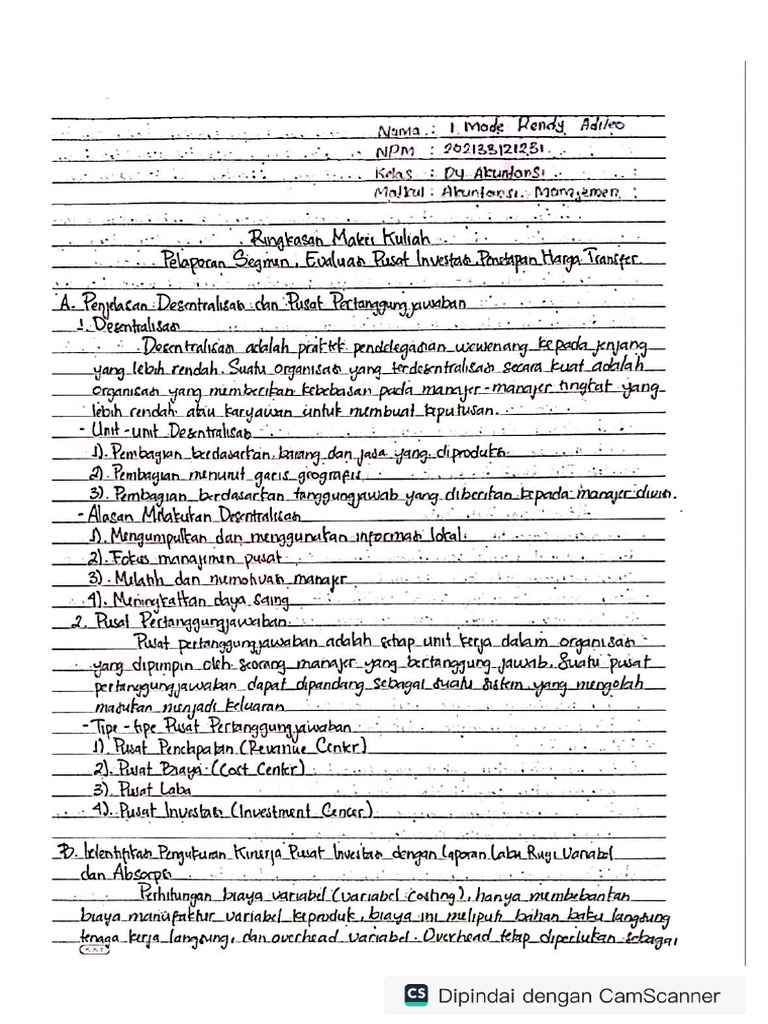 Nama : I Made Rendy Adileo
NPM : 202133121231
Kelas : Dy Akuntansi
Matkul : Akuntansi Manajemen
Ringkasan Materi Kuliah
Pelaporan Segmen, Evaluasi Pusat Investasi, Penetapan Harga Transfer
A. Penjelasan Desentralisasi dan Pusat Pertanggungjawaban
1. Desentralisasi
Desentralisasi adalah praktek pendelegasian wewenang kepada jenjang
yang lebih rendah. Suatu organisasi yang terdesentralisasi secara kuat adalah
organisasi yang memberikan kebebasan pada manajer-manajer tingkat yang
lebih rendah atau karyawan untuk membuat keputusan.
- Unit-unit Desentralisasi
1). Pembagian berdasarkan barang dan jasa yang diproduksi
2). Pembagian menurut garis geografis
3). Pembagian berdasarkan tanggungjawab yang diberikan kepada manajer divisi.
- Alasan Melakukan Desentralisasi
1). Mengumpulkan dan menggunakan informasi lokal
2). Fokus manajemen pusat
3). Melatih dan memotivasi manajer
4). Meningkatkan daya saing
2. Pusat Pertanggungjawaban
Pusat pertanggungjawaban adalah setiap unit kerja dalam organisasi
yang dipimpin oleh seorang manajer yang bertanggung jawab. Suatu pusat
pertanggungjawaban dapat dipandang sebagai suatu sistem yang mengolah
masukan menjadi keluaran
- Tipe-tipe Pusat Pertanggungjawaban
1). Pusat Pendapatan (Revenue Center)
2). Pusat Biaya (Cost Center)
3). Pusat Laba
4). Pusat Investasi (Investment Center)
B. Identifikasi Pengukuran Kinerja Pusat Investasi dengan Laporan Laba Rugi Variabel
dan Absorpsi
Perhitungan biaya variabel (variabel costing), hanya membebankan
biaya manufaktur variabel keproduk, biaya ini meliputi bahan baku langsung
tenaga kerja langsung, dan overhead variabel. Overhead tetap diperlukan sebagai
KKY
CS Dipindai dengan CamScanner